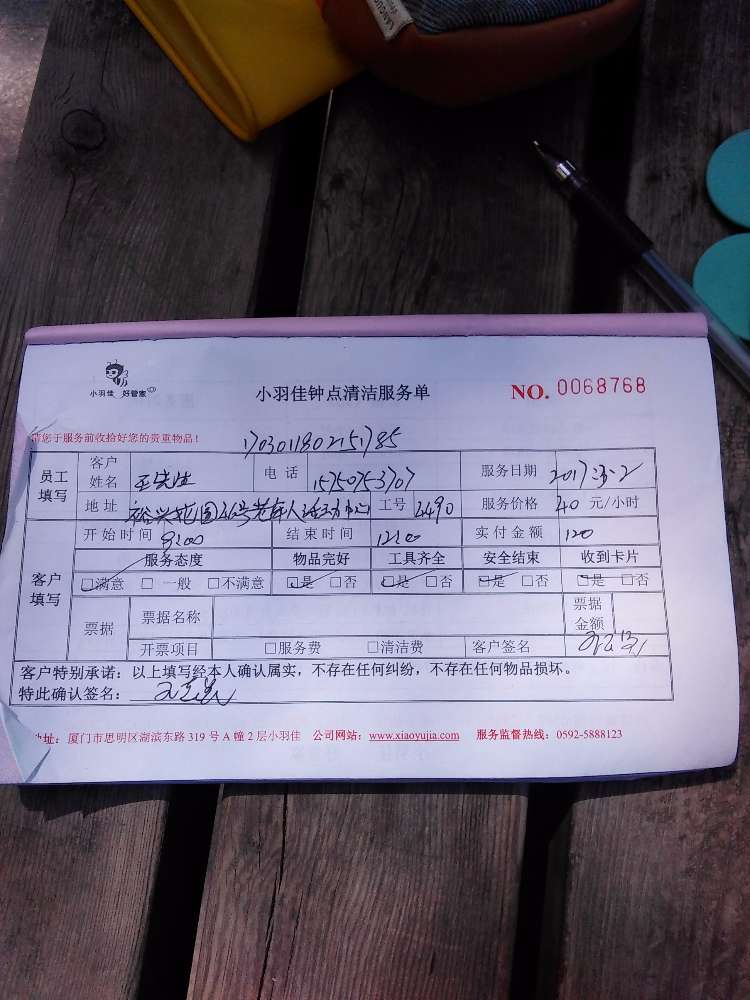 小羽佳 好管家
小羽佳钟点清洁服务单
NO. 0068768
请您于服务前收拾好您的贵重物品！
1703011802151785
员工填写 客户姓名 王先生 电话 15750753707 服务日期 2017.3.2
地址 裕兴花园 号老年人活动中心 工号 2490 服务价格 40 元/小时
客户填写 开始时间 9:00 结束时间 12:00 实付金额 120
服务态度 物品完好 工具齐全 安全结束 收到卡片
□满意 □一般 □不满意 □是 □否 □是 □否 □是 □否 □是 □否
票据 票据名称 票据金额
开票项目 □服务费 □清洁费 客户签名
客户特别承诺：以上填写经本人确认属实，不存在任何纠纷，不存在任何物品损坏。
特此确认签名：
地址：厦门市思明区湖滨东路 319 号 A 幢 2 层小羽佳 公司网站：www.xiaoyujia.com 服务监督热线：0592-5888123